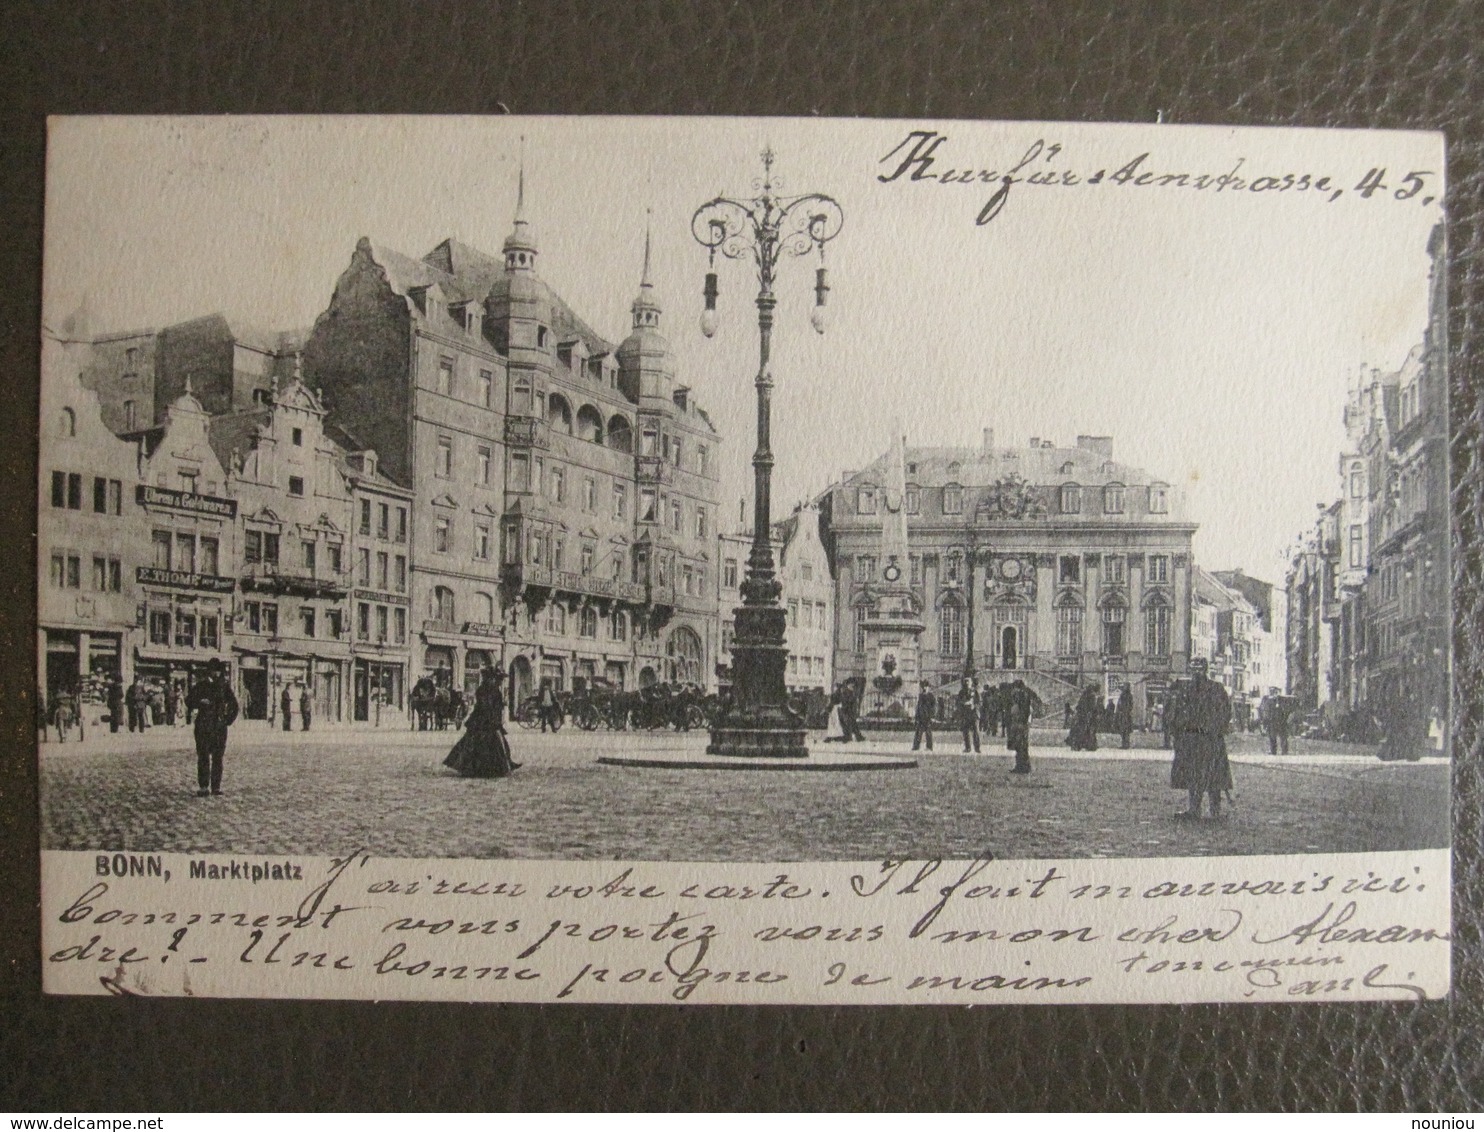 Kurfürstenstrasse, 45.
Uhren & Goldwaren
E. THOMÉ
BONN, Marktplatz
J'ai reçu votre carte. Il fait mauvais ici.
Comment vous portez vous mon cher Alexan-
dre? - Une bonne poigne de mains ton cousin
Paul
delcampe.net
nouniou